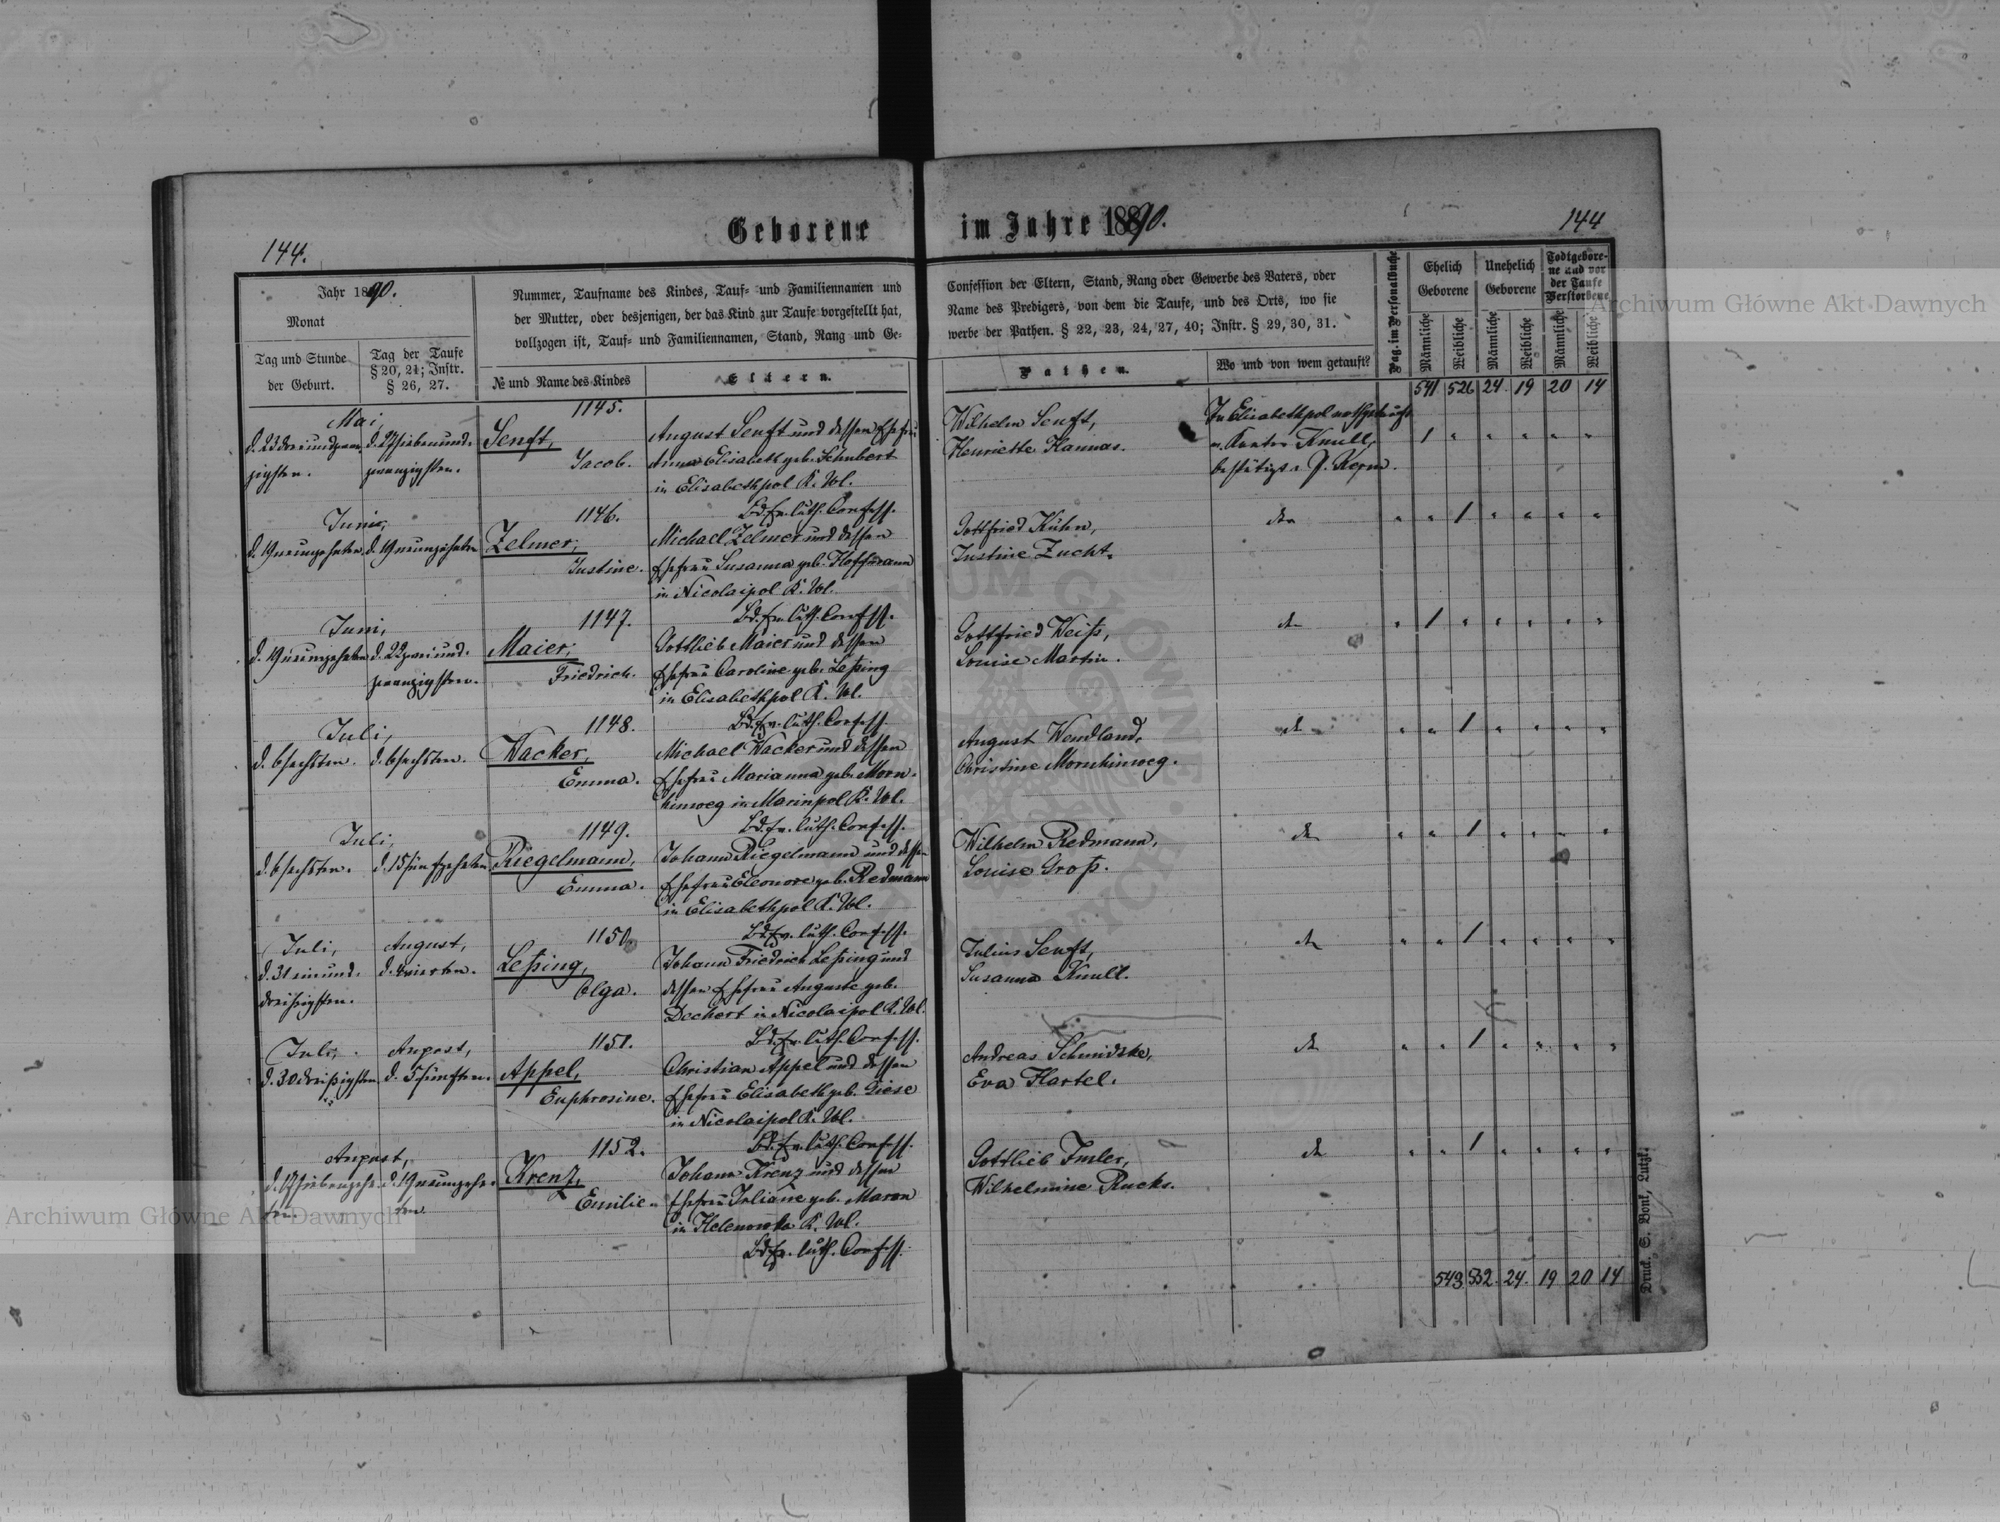 Geborene im Jahre 1890.
144.
144
Jahr 1890.
Monat
Tag und Stunde
der Geburt.
Tag der Taufe
§ 20, 21; Instr.
§ 26, 27.
Nummer, Taufname des Kindes, Tauf- und Familiennamen und
der Mutter, oder desjenigen, der das Kind zur Taufe vorgestellt hat,
vollzogen ist, Tauf- und Familiennamen, Stand, Rang und Ge-
№ und Name des Kindes
Eltern.
Confession der Eltern, Stand, Rang oder Gewerbe des Vaters, oder
Name des Predigers, von dem die Taufe, und des Orts, wo sie
werbe der Pathen. § 22, 23, 24, 27, 40; Instr. § 29, 30, 31.
Pathen.
Wo und von wem getauft?
Pag. im Personalbuche
Ehelich
Geborene
Unehelich
Geborene
Todtgebore-
ne und vor
der Taufe
Verstorbene
Männliche
Weibliche
Männliche
Weibliche
Männliche
Weibliche
541 526 24 19 20 14
Mai,
d. 23 dreiundzwan
zigsten.
d. 27 siebenund-
zwanzigsten.
1145.
Senft,
Jacob.
August Senft und dessen Ehefrau
Anna Elisabeth geb. Schubert
in Elisabethpol K. Wl.
Bd. ev. luth. Confess.
Wilhelm Senft,
Henriette Hannas.
In Elisabethpol nothgetauft
v. Kantor Knull,
bestätigt v. P. Kern.
1
Juni,
d. 19 neunzehnten
d. 19 neunzehnten
1146.
Zelmer,
Justine.
Michael Zelmer und dessen
Ehefrau Susanna geb. Hoffmann
in Nicolaipol K. Wl.
Bd. ev. luth. Confess.
Gottfried Kühn,
Justine Zucht.
1
Juni,
d. 19 neunzehnten
d. 22 zweiund-
zwanzigsten.
1147.
Maier,
Friedrich.
Gottlieb Maier und dessen
Ehefrau Caroline geb. Leßing
in Elisabethpol K. Wl.
Bd. ev. luth. Confess.
Gottfried Weiß,
Louise Martin.
1
Juli,
d. 6 sechsten.
d. 6 sechsten.
1148.
Wacker,
Emma.
Michael Wacker und dessen
Ehefrau Marianna geb. Morn-
hinweg in Marinpol K. Wl.
Bd. ev. luth. Confess.
August Wendland,
Christine Mornhinweg.
1
Juli,
d. 6 sechsten.
d. 15 fünfzehnten
1149.
Riegelmann,
Emma.
Johann Riegelmann und dessen
Ehefrau Eleonore geb. Redmann
in Elisabethpol K. Wl.
Bd. ev. luth. Confess.
Wilhelm Redmann,
Louise Groß.
1
Juli,
d. 31 einund-
dreißigsten.
August,
d. 4 vierten.
1150.
Leßing,
Olga.
Johann Friedrich Leßing und
dessen Ehefrau Auguste geb.
Dechert in Nicolaipol K. Wl.
Bd. ev. luth. Confess.
Julius Senft,
Susanna Knull.
1
Juli,
d. 30 dreißigsten
August,
d. 5 fünften.
1151.
Appel,
Euphrosine.
Christian Appel und dessen
Ehefrau Elisabeth geb. Giese
in Nicolaipol K. Wl.
Bd. ev. luth. Confess.
Andreas Schmidtke,
Eva Hartel.
1
August,
d. 17 siebenzehn-
ten.
d. 19 neunzehn-
ten
1152.
Krenz,
Emilie.
Johann Krenz und dessen
Ehefrau Juliane geb. Maron
in Helenowka K. Wl.
Bd. ev. luth. Confess.
Gottlieb Imler,
Wilhelmine Rucks.
1
543 532. 24. 19 20 14
Druck. S. Bonk, Lutzk.
Archiwum Główne Akt Dawnych
Archiwum Główne Akt Dawnych